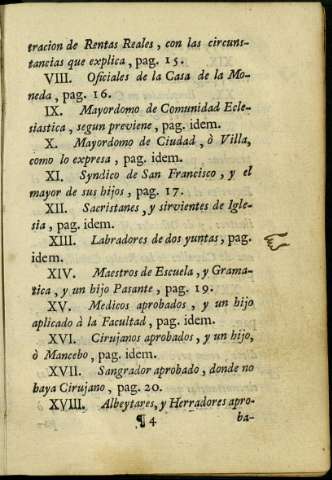 tracion de Rentas Reales, con las circuns-
tancias que explica, pag. 15.
VIII. Oficiales de la Casa de la Mo-
neda, pag. 16.
IX. Mayordomo de Comunidad Ecle-
siastica, segun previene, pag. idem.
X. Mayordomo de Ciudad, ò Villa,
como lo expresa, pag. idem.
XI. Syndico de San Francisco, y el
mayor de sus hijos, pag. 17.
XII. Sacristanes, y sirvientes de Igle-
sia, pag. idem.
XIII. Labradores de dos yuntas, pag.
idem.
XIV. Maestros de Escuela, y Grama-
tica, y un hijo Pasante, pag. 19.
XV. Medicos aprobados, y un hijo
aplicado à la Facultad, pag. idem.
XVI. Cirujanos aprobados, y un hijo,
ò Mancebo, pag. idem.
XVII. Sangrador aprobado, donde no
haya Cirujano, pag. 20.
XVIII. Albeytares, y Herradores apro-
¶4 ba-